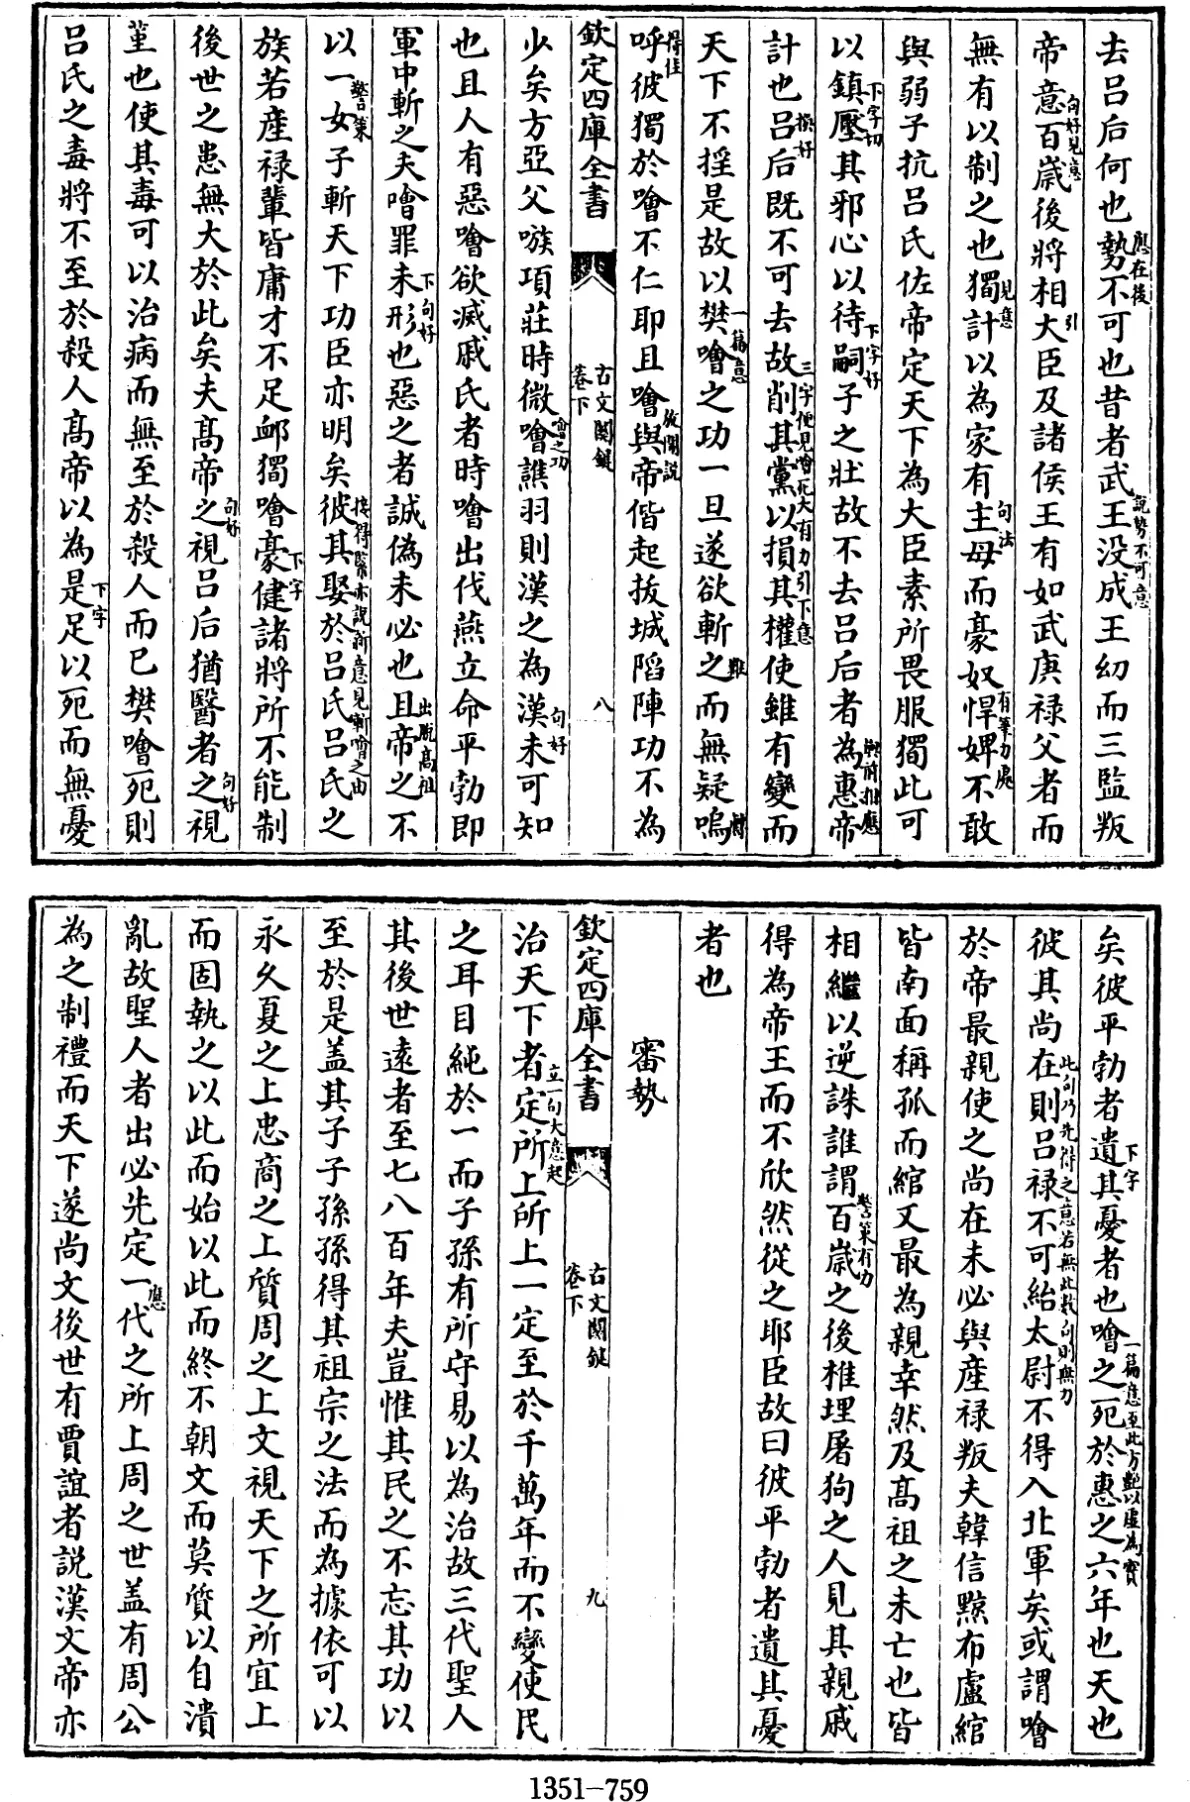 去呂后何也勢不可也昔者武王没成王幼而三監叛
應在後
說勢不可意
帝意百嵗後將相大臣及諸侯王有如武庚禄父者而
句好見意
引
無有以制之也獨計以為家有主母而豪奴悍婢不敢
見意
句法
有筆力處
與弱子抗呂氏佐帝定天下為大臣素所畏服獨此可
以鎮壓其邪心以待嗣子之壯故不去呂后者為惠帝
下字切
下字好
與前相應
計也呂后既不可去故削其黨以損其權使雖有變而
接好
三字便見噲死大有力引下意
天下不揺是故以樊噲之功一旦遂欲斬之而無疑嗚
一篇意
難
呼彼獨於噲不仁耶且噲與帝偕起拔城陷陣功不為
得住
放開說
欽定四庫全書
古文闗鍵
卷下
八
少矣方亞父嗾項莊時微噲譙羽則漢之為漢未可知
噲之功
句好
也且人有惡噲欲滅戚氏者時噲出伐燕立命平勃即
軍中斬之夫噲罪未形也惡之者誠偽未必也且帝之不
下句好
出脱高祖
以一女子斬天下功臣亦明矣彼其娶於呂氏呂氏之
警策
接得緊亦說前意見斬噲之由
族若産禄輩皆庸才不足䘏獨噲豪健諸將所不能制
下字
後世之患無大於此矣夫髙帝之視呂后猶醫者之視
句好
句好
堇也使其毒可以治病而無至於殺人而已樊噲死則
呂氏之毒將不至於殺人高帝以為是足以死而無憂
下字
矣彼平勃者遺其憂者也噲之死於惠之六年也天也
下字
一篇意至此方齾以虛為實
彼其尚在則呂禄不可紿太尉不得入北軍矣或謂噲
此句乃先得之意若無此數句則無力
於帝最親使之尚在未必與産禄叛夫韓信黥布盧綰
皆南面稱孤而綰又最為親幸然及髙祖之未亡也皆
相繼以逆誅誰謂百嵗之後椎埋屠狗之人見其親戚
警策有力
得為帝王而不欣然從之耶臣故曰彼平勃者遺其憂
者也
審勢
欽定四庫全書
古文闗鍵
卷下
九
治天下者定所上所上一定至於千萬年而不變使民
立一句大意起
之耳目純於一而子孫有所守易以為治故三代聖人
其後世遠者至七八百年夫豈惟其民之不忘其功以
至於是盖其子子孫孫得其祖宗之法而為據依可以
永久夏之上忠商之上質周之上文視天下之所宜上
而固執之以此而始以此而終不朝文而莫質以自潰
亂故聖人者出必先定一代之所上周之世盖有周公
應
為之制禮而天下遂尚文後世有賈誼者説漢文帝亦
1351-759